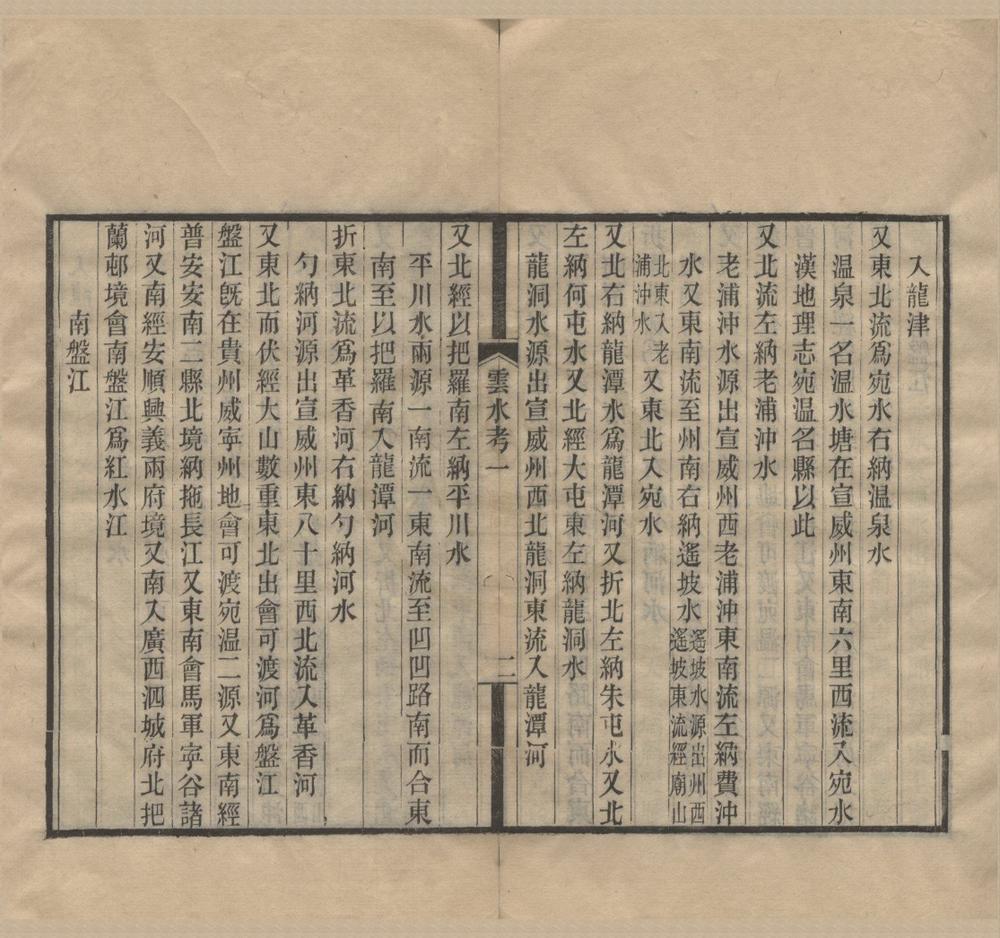 入龍津
又東北流爲宛水右納温泉水
温泉一名温水塘在宣威州東南六里西流入宛水
漢地理志宛温名縣以此
又北流左納老浦沖水
老浦沖水源出宣威州西老浦沖東南流左納費沖
水又東南流至州南右納遙坡水遙坡水源出州西遙坡東流經廟山
北東入老浦沖水又東北入宛水
又北右納龍潭水爲龍潭河又折北左納朱屯水又北
左納何屯水又北經大屯東左納龍洞水
龍洞水源出宣威州西北龍洞東流入龍潭河
雲水考一
二
又北經以把羅南左納平川水
平川水兩源一南流一東南流至凹凹路南而合東
南至以把羅南入龍潭河
折東北流爲革香河右納勺納河水
勺納河源出宣威州東八十里西北流入革香河
又東北而伏經大山數重東北出會可渡河爲盤江
盤江旣在貴州威寧州地會可渡宛温二源又東南經
普安安南二縣北境納拖長江又東南會馬軍寧谷諸
河又南經安順興義兩府境又南入廣西泗城府北把
蘭邨境會南盤江爲紅水江
南盤江